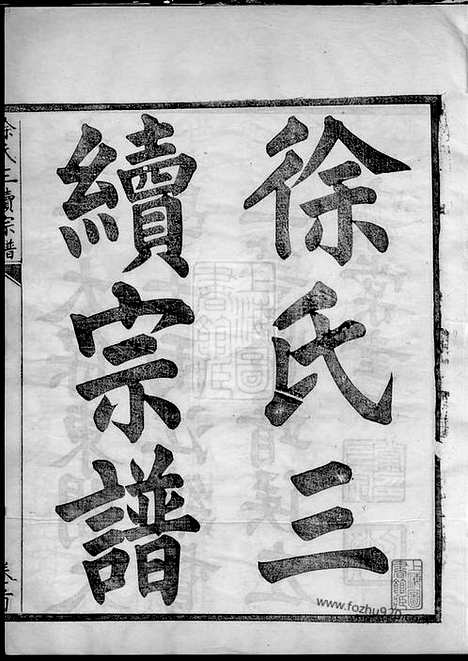 徐氏三
續宗譜
徐氏三續宗譜
卷首
www.fozhu920